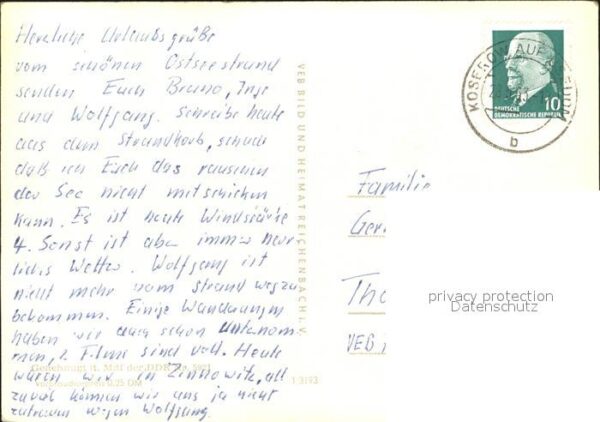 Herzliche Urlaubsgrüße
vom schönen Ostseestrand
senden Euch Bruno, Inge
und Wolfgang. Schreibe heute
aus dem Strandkorb, schade
daß ich Euch das rauschen
der See nicht mitschicken
kann. Es ist heute Windstärke
4. Sonst ist aber immer herr-
liches Wetter. Wolfgang ist
nicht mehr vom Strand wegzu
bekommen. Einige Wanderungen
haben wir auch schon unternom-
men, 2 Filme sind voll. Heute
waren wir in Zinnowitz, all
zuviel können wir uns ja nicht
zutrauen wegen Wolfgang.
Genehmigt Md der DDR
0,25 DM
VEB BILD UND HEIMAT REICHENBACH I. V.
KOSEROW AUF USEDOM
b
10
DEUTSCHE
DEMOKRATISCHE REPUBLIK
Familie
Ger
Tho
VEB
privacy protection
Datenschutz